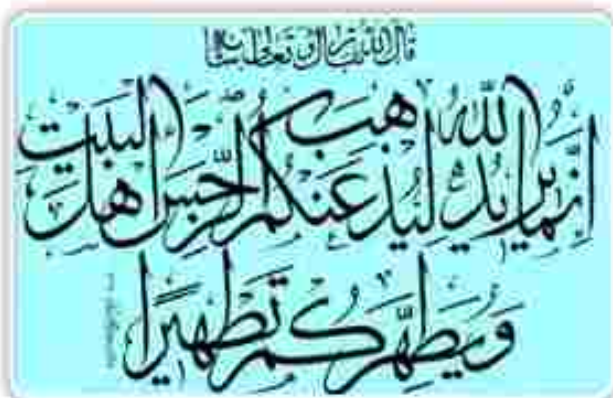 قال الله تبارک و تعالی
إنما يريد الله ليذهب عنكم الرجس أهل البيت
ويطهركم تطهيرا